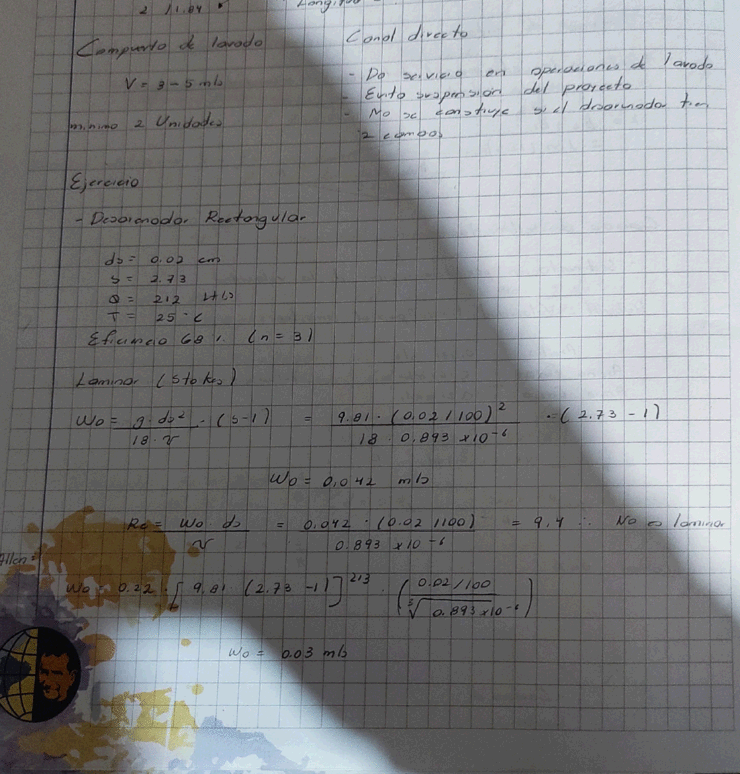 Compuerta de lavado
V = 3 - 5 m/s
minimo 2 Unidades
Canal directo
- Da servicio en operaciones de lavado
- Evita suspension del proyecto
- No se construye si el desarenador tien
2 camaras
Ejercicio
- Desarenador Rectangular
ds = 0.02 cm
s = 2.73
Q = 212 Lt/s
T = 25 °C
Eficiencia 68 % (n = 3)
Laminar (Stokes)
Wo = g · ds² / 18 · ν · (s-1) = 9.81 · (0.02/100)² / 18 · 0.893 x10⁻⁶ · (2.73 - 1)
Wo = 0.042 m/s
Re = Wo · ds / ν = 0.042 · (0.02/100) / 0.893 x10⁻⁶ = 9.4 ∴ No es laminar
Allen =
Wo = 0.22 · [9.81 · (2.73 - 1)]^2/3 · (0.02/100 / ∛0.893 x10⁻⁶)
Wo = 0.03 m/s